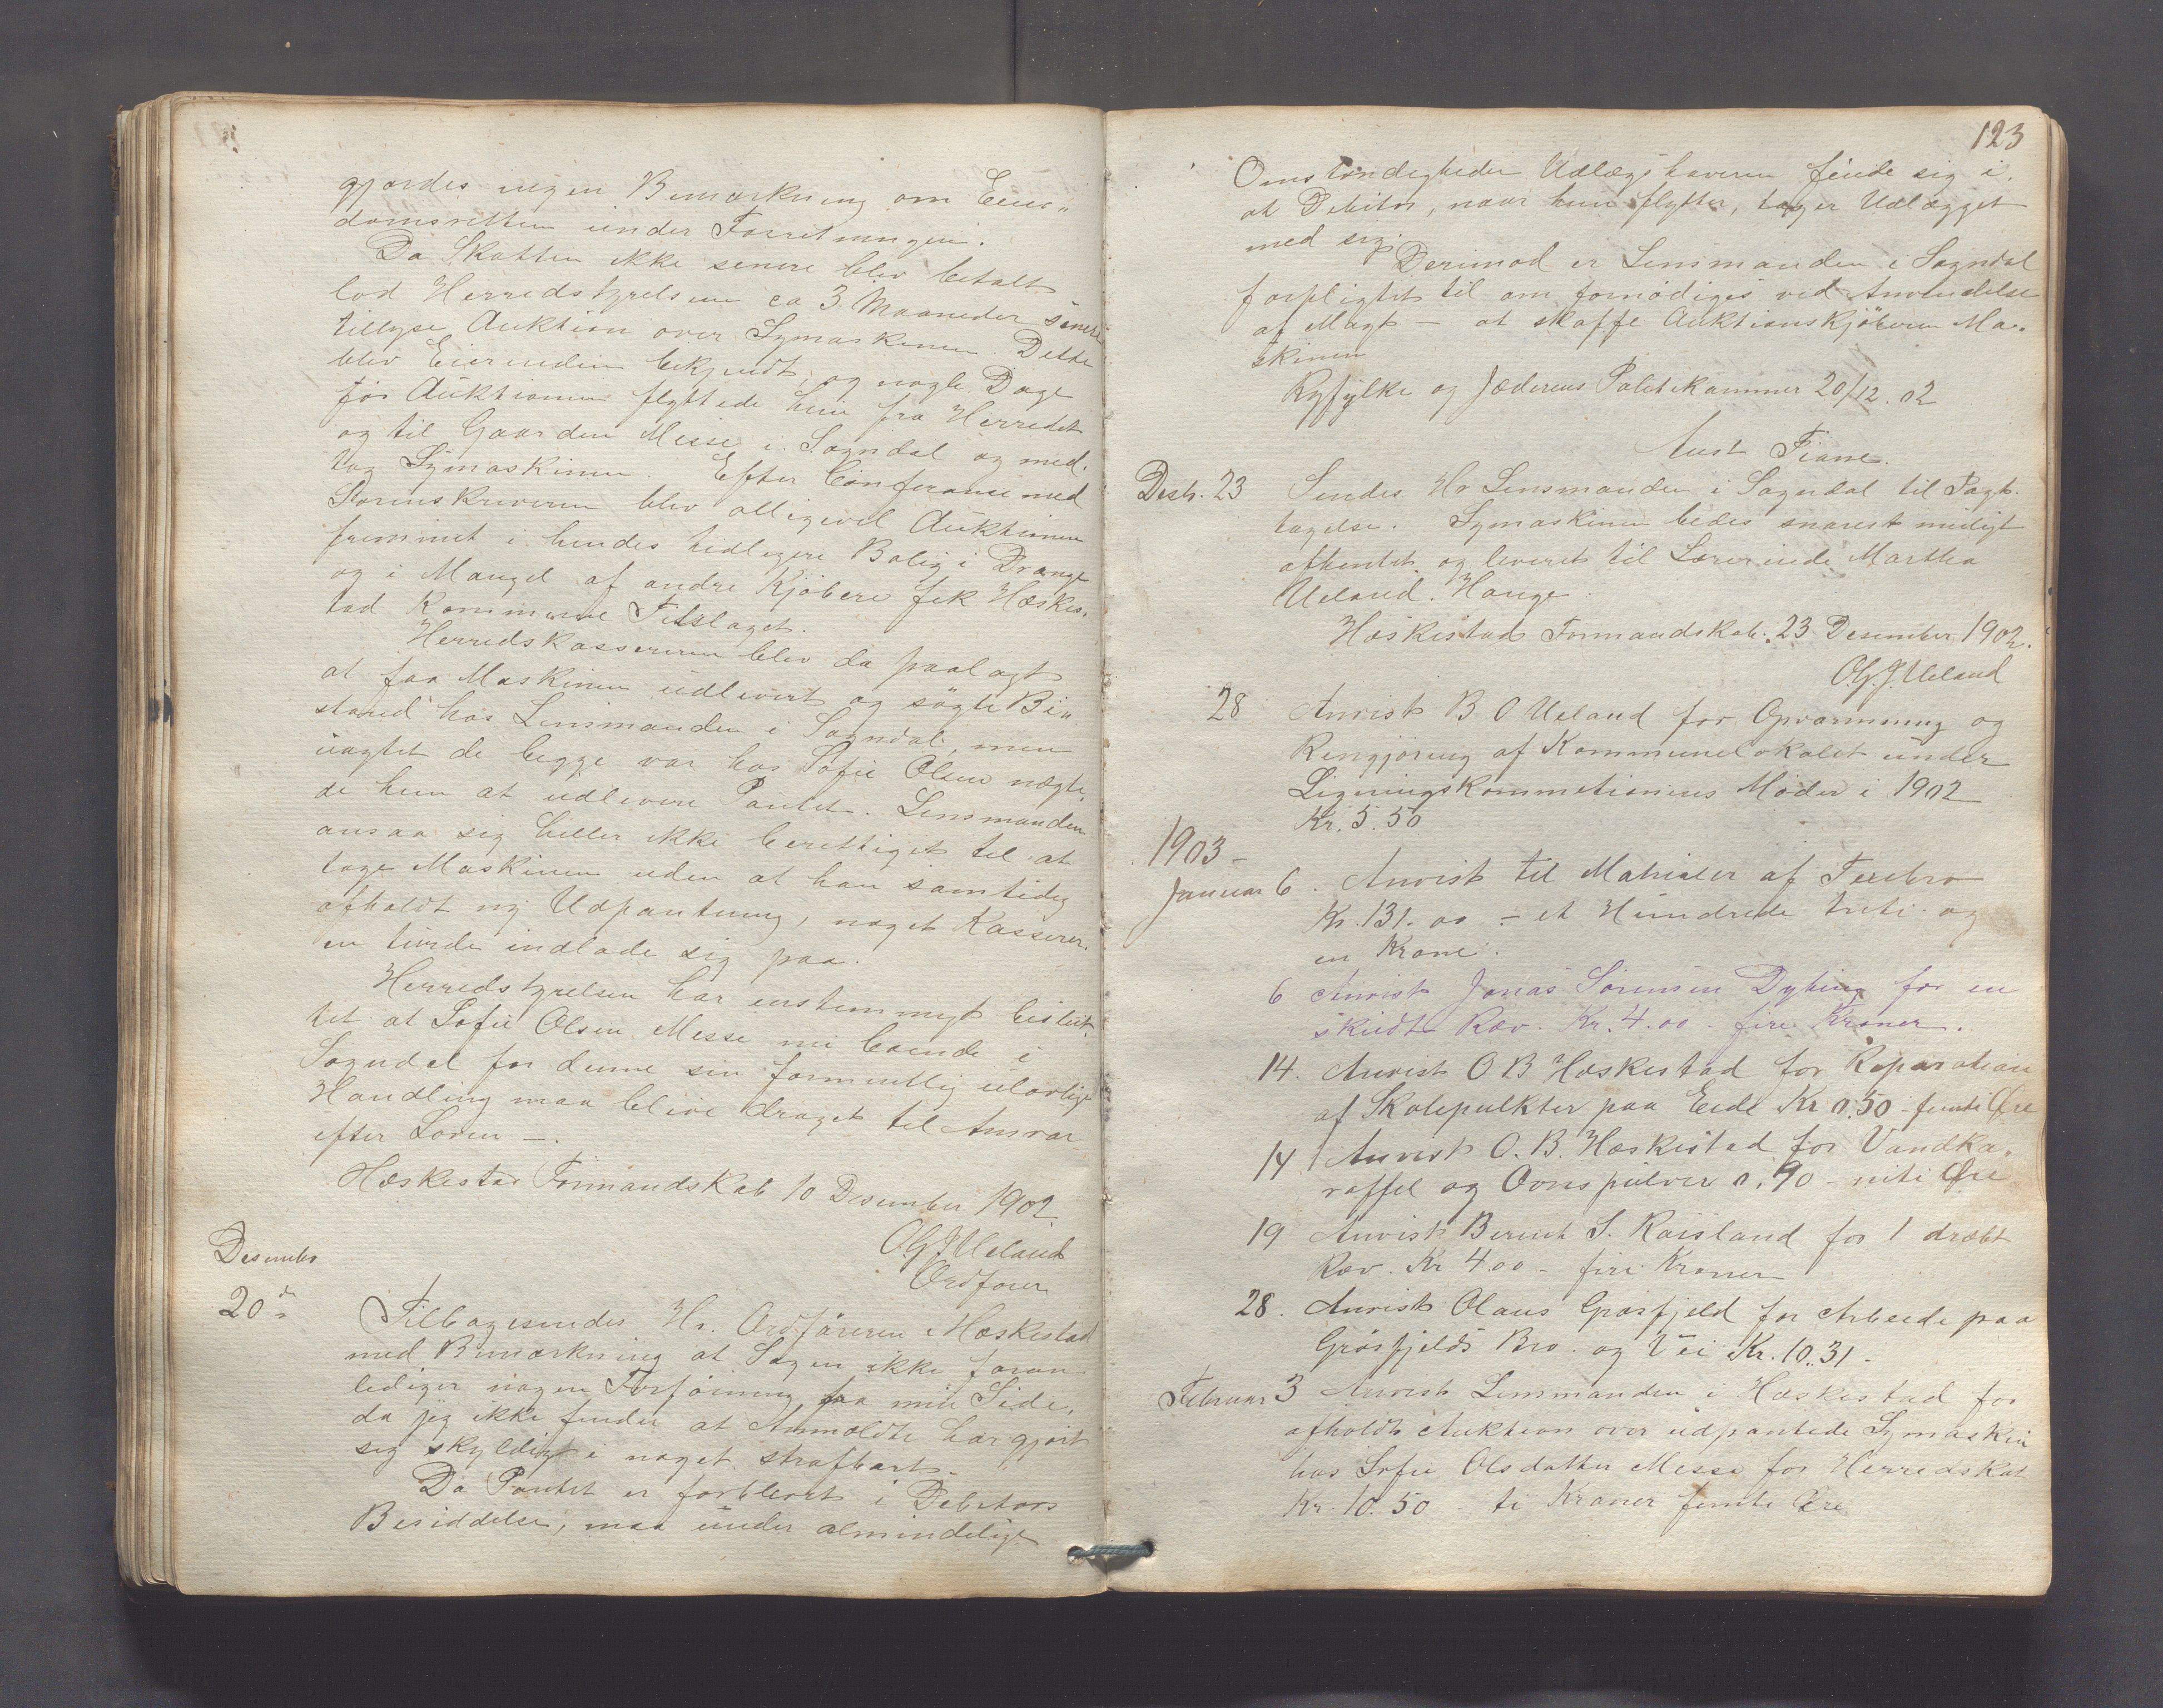 gjordes ingen Bemærkning om Eien„
domsretten under Forretningen.
Da Skatten ikke senere blev betalt
lod Herredstyrelsen ca 3 Maaneder senere
tillyse Auktion over Symaskinen. Dette
blev Eierinden bekjendt, og nogle Dage
før Auktionen flyttede hun fra Herredet
og til Gaarden Messe i Sogndal og med-
tog Symaskinen. Efter Conferanse med
Sorenskriveren blev alligevel Auktionen
fremmet i hendes tidligere Bolig i Drange
og i Mangel af andre Kjøbere fik Heskes-
tad Kommune Tilslaget.
Herredskassereren blev da paalagt
at faa Maskinen udlevert og søgte Bi„
stand hos Lensmanden i Sogndal, men
uagtet de begge var hos Sofie Olsen nægte-
de hun at udlevere Pantet. Lensmanden
ansaa sig heller ikke berettiget til at
tage Maskinen uden at han samtidig
afholdt ny Udpantning, noget Kasserer-
en turde indlade sig paa.
Herredstyrelsen har enstemmigt beslut-
tet at Sofie Olsen Messe nu boende i
Sogndal for denne sin formentlig ulovlige
Handling maa blive draget til Ansvar
efter Loven —.
Heskestad Formandskab 10 Desember 1902
O.G.J. Ueland
Ordfører
Desember
20de
Tilbagesendes Hr. Ordføreren i Heskestad
med Bemærkning at Sagen ikke foran-
lediger nogen Forføining fra min Side,
da jeg ikke finder at Anmeldte har gjort
sig skyldig i noget strafbart.
Da Pantet er forblevet i Debitors
Besiddelse, maa under almindelige
123
Omstændigheder Udlægshaveren finde sig i,
at Debitor, naar hun flytter, tager Udlægget
med sig.
Derimod er Lensmanden i Sogndal
forpligtet til om fornødiges ved Anvendelse
af Magt — at skaffe Auktionskjøberen Ma-
skinen
Ryfylke og Jæderens Politikammer 20/12.02
Aust Fiane.
Desb. 23 Sendes Hr Lensmanden i Sogndal til Iagt-
tagelse. Symaskinen bedes snarest muligt
afhentet og leveret til Lærerinde Martha
Ueland. Hauge.
Heskestad Formandskab. 23 Desember 1902.
O.G.J. Ueland
28 Anvist B O Ueland for Opvarmning og
Rengjøring af Kommunelokalet under
Ligningskommetionens Møder i 1902
Kr. 5.50
1903 —
Januar 6. Anvist til Matrialer af
Kr. 131.00 — et Hundrede treti og
en Krone.
6 Anvist Jonas Sørensen Dybing for en
skudt Ræv. Kr. 4.00 – fire Kroner.
14. Anvist O B Heskestad for Reparation
af Skolepulkter paa Eide Kr 0.50 – femti Øre
14 Anvist O. B. Heskestad for Vandka„
raffel og Ovnspulver 0.90 – niti Øre
19 Anvist Berent S. Røisland for 1 dræbt
Ræv. Kr 4.00 – fire Kroner
28. Anvist Olaus Grøsfjeld for Arbeide paa
Grøsfjelds Bro og Vei Kr. 10.31 –
Februar 3 Anvist Lensmanden i Heskestad for
afholdt Auktion over udpantede Symaskin
hos Sofie Olsdatter Messe for Herredskat
Kr. 10.50 – ti Kroner femti Øre